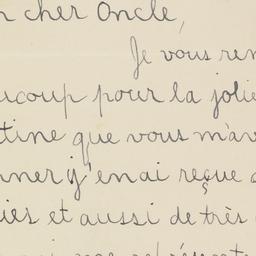 n cher Oncle,
Je vous rem
ucoup pour la jolie
tine que vous m'av
nner j'en ai reçue d
iés et aussi de très